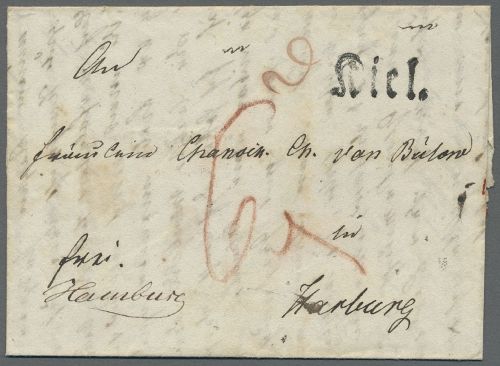 An
Kiel.
Fräulein Chanoin. Ch. van Bülow
in
frei.
Hamburg
Harburg